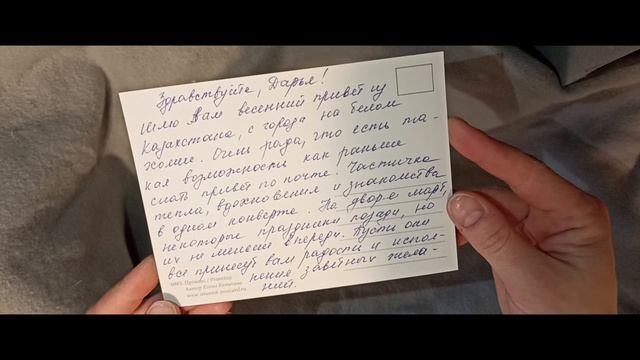 Здравствуйте, Дарья!
Шлю Вам весенний привет из
Казахстана, с города на белом
холме. Очень рада, что есть та-
кая возможность как раньше
слать привет по почте. Частичка
тепла, вдохновения и знакомства
в одном конверте. На дворе март,
некоторые праздники позади, но
их не менее впереди. Пусть они
все принесут вам радости и испол-
нение заветных жела-
ний.
Автор Елена